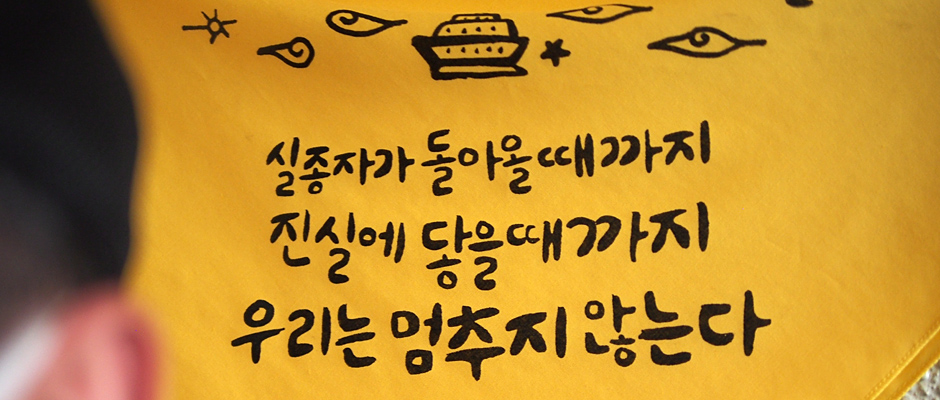 실종자가 돌아올 때까지
진실에 닿을 때까지
우리는 멈추지 않는다